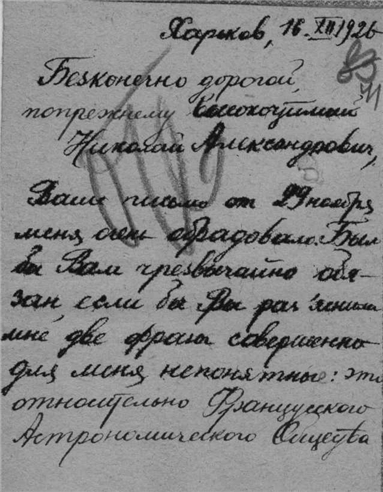 Харьков, 16.XII 1926
Безконечно дорогой,
попрежнему высокочтимый
Николай Александрович,
Ваше письмо от 29 ноября
меня очень обрадовало. Был
бы Вам чрезвычайно обя-
зан, если бы Вы раз'яснили
мне две фразы совершенно
для меня непонятные: это
относительно Французского
Астрономического Общества